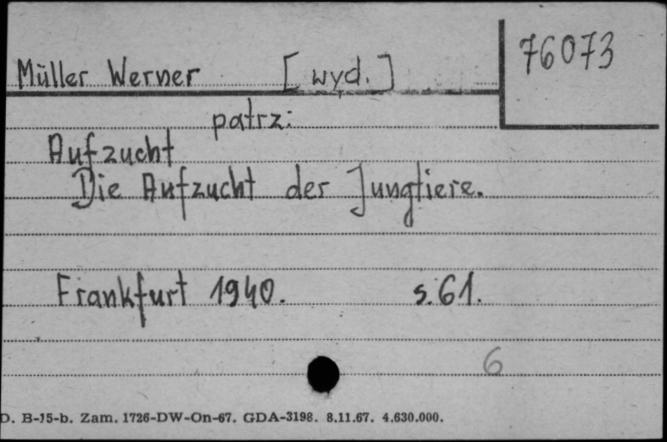 76073
Müller Werner [wyd.]
patrz:
Aufzucht
Die Aufzucht der Jungtiere.
Frankfurt 1940. s.61.
6
D. B-15-b. Zam. 1726-DW-On-67. GDA-3198. 8.11.67. 4.630.000.